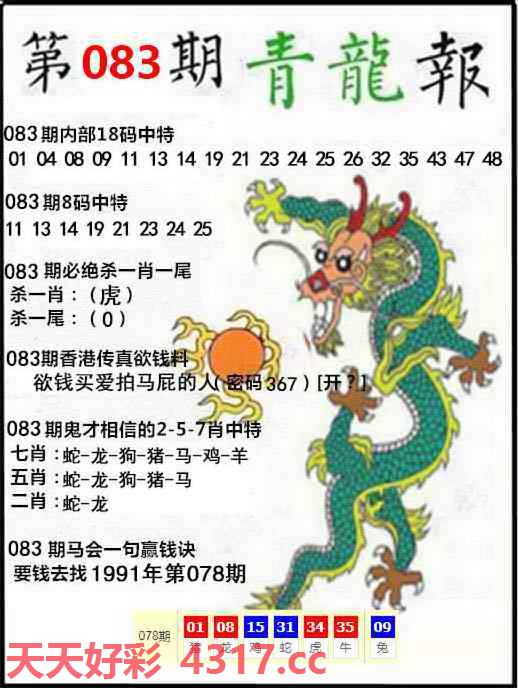 第083期青龍報
083期内部18码中特
01 04 08 09 11 13 14 19 21 23 24 25 26 32 35 43 47 48
083期8码中特
11 13 14 19 21 23 24 25
083 期必绝杀一肖一尾
杀一肖：（虎）
杀一尾：（0）
083期香港传真欲钱料
欲钱买爱拍马屁的人（密码367）[开？]
083期鬼才相信的2-5-7肖中特
七肖：蛇-龙-狗-猪-马-鸡-羊
五肖：蛇-龙-狗-猪-马
二肖：蛇-龙
083 期马会一句赢钱诀
要钱去找1991年第078期
078期 01 08 15 31 34 35 09
猪 龙 鸡 蛇 虎 牛 兔
天天好彩 4317.cc